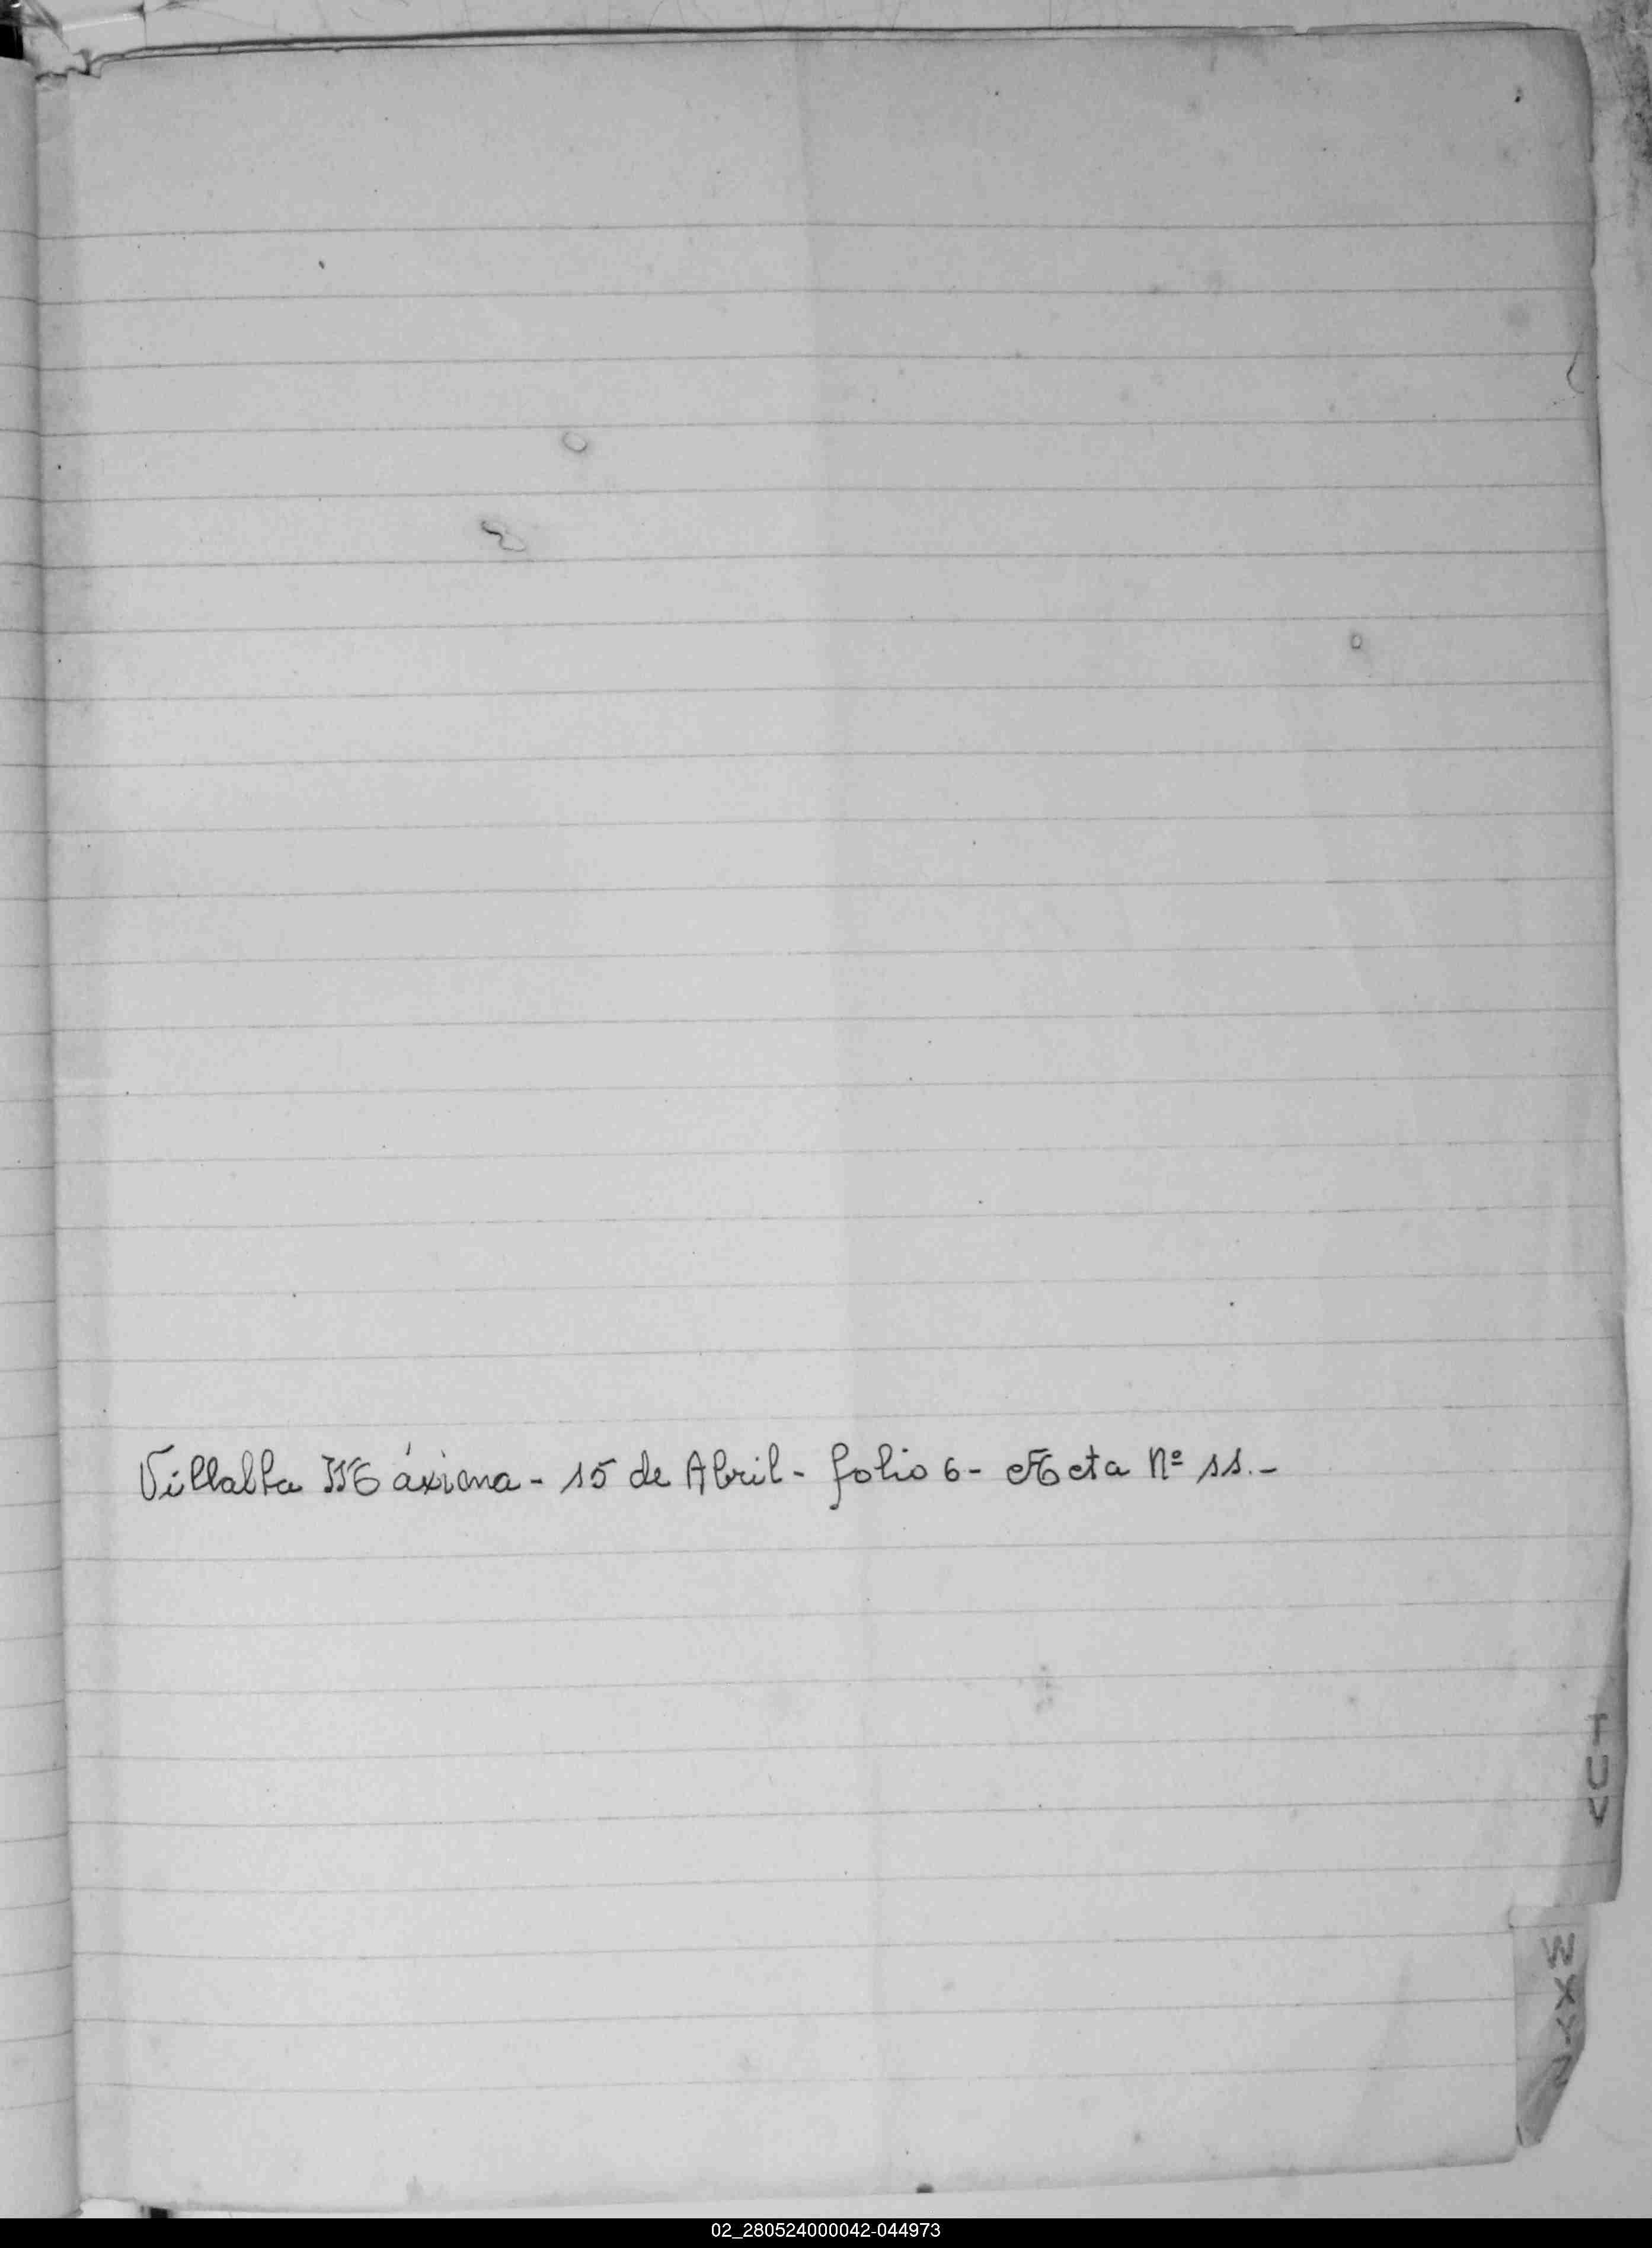 Villalba Máxima - 15 de Abril - folio 6 - Acta Nº 11.-
T
U
V
W
X
Y
Z
02_280524000042-044973